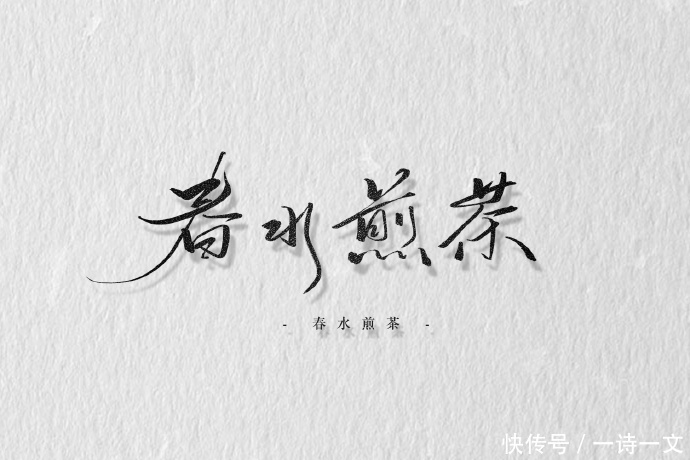 春水煎茶
- 春水煎茶 -
快传号 / 一诗一文